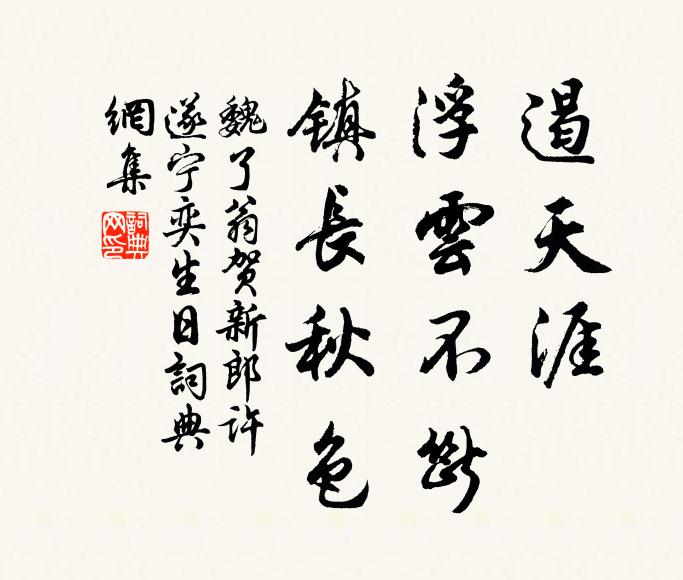 遏天涯
浮雲不斷
鎮長秋色
魏了翁賀新郎許
遂宁奕生日詞典
網集
詞典
网印